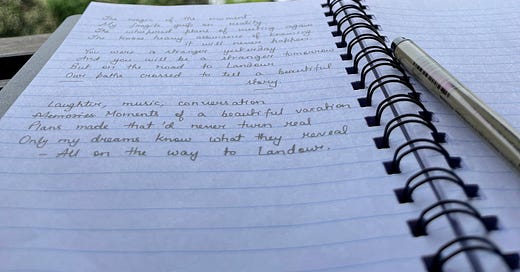 The magic of the moment
My single grip on reality
The whispered plans of meeting again
The known teary assurance of knowing
it will never happen
You were a stranger yesterday
And you will be a stranger tomorrow
But on the road to Landour
Our paths crossed to tell a beautiful
story
Laughter, music, conversation
Memories Moments of a beautiful vacation
Plans made that'd never turn real
Only my dreams know what they reveal
- All on the way to Landour.